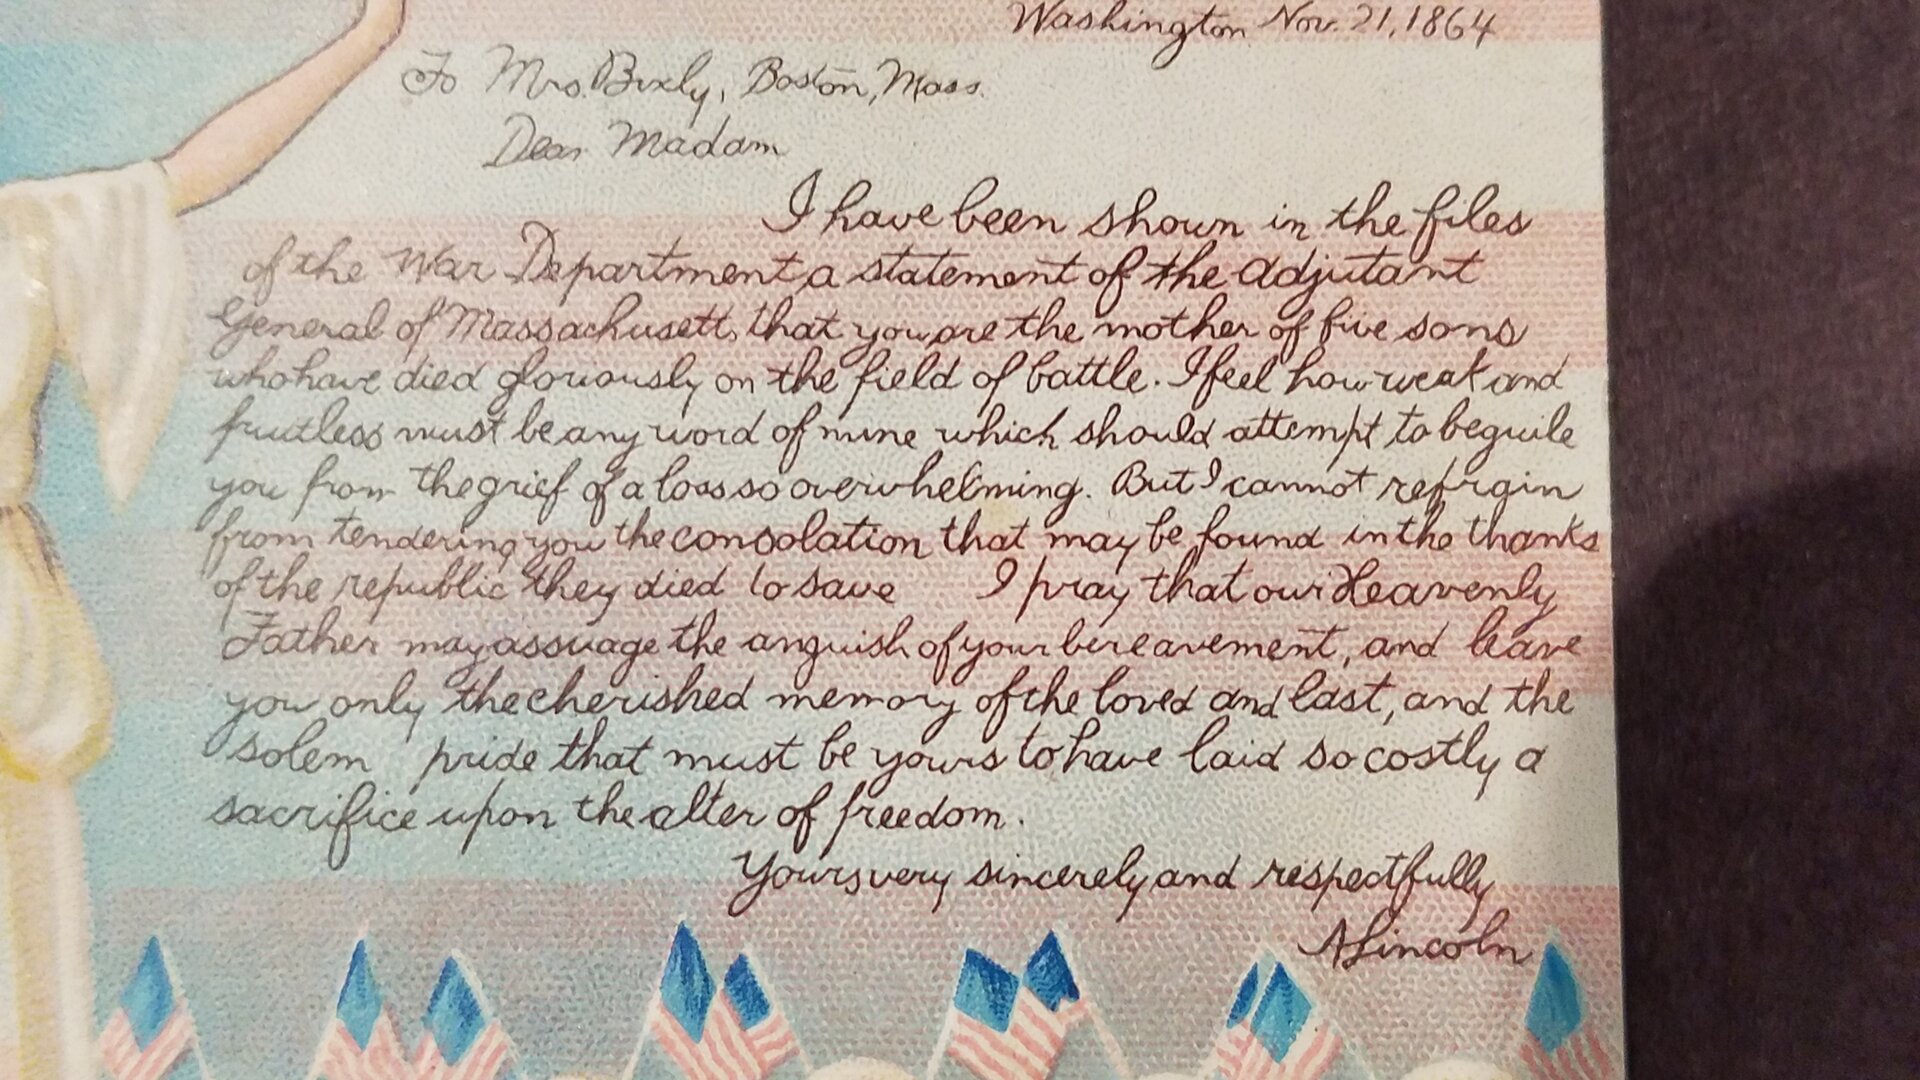 Washington Nov. 21, 1864
To Mrs. Bixly, Boston, Mass.
Dear Madam
I have been shown in the files
of the War Department a statement of the Adjutant
General of Massachusetts, that you are the mother of five sons
who have died gloriously on the field of battle. I feel how weak and
fruitless must be any word of mine which should attempt to beguile
you from the grief of a loss so overwhelming. But I cannot refrain
from tendering you the consolation that may be found in the thanks
of the republic they died to save I pray that our Heavenly
Father may assuage the anguish of your bereavement, and leave
you only the cherished memory of the loved and last, and the
solem pride that must be yours to have laid so costly a
sacrifice upon the alter of freedom.
Yours very sincerely and respectfully
A Lincoln